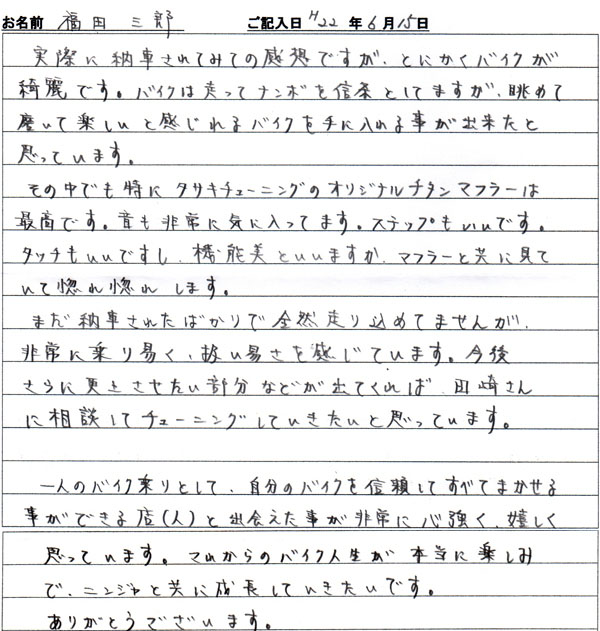 お名前 福田 三郎 ご記入日 H22 年 6 月 15 日
実際に納車されてみての感想ですが、とにかくバイクが
綺麗です。バイクは走ってナンボを信条としてますが、眺めて
磨いて楽しいと感じれるバイクを手に入れる事が出来たと
思っています。
その中でも特にタサキチューニングのオリジナルチタンマフラーは
最高です。音も非常に気に入ってます。ステップもいいです。
タッチもいいですし、機能美といいますか、マフラーと共に見て
いて惚れ惚れします。
まだ納車されたばかりで全然走り込めてませんが、
非常に乗り易く、扱い易さを感じています。今後
さらに更とさせたい部分などが出てくれば、田崎さん
に相談してチューニングしていきたいと思っています。
一人のバイク乗りとして、自分のバイクを信頼してすべてまかせる
事ができる店(人)と出会えた事が非常に心強く、嬉しく
思っています。これからのバイク人生が本当に楽しみ
で、ニンジャと共に成長していきたいです。
ありがとうございます。